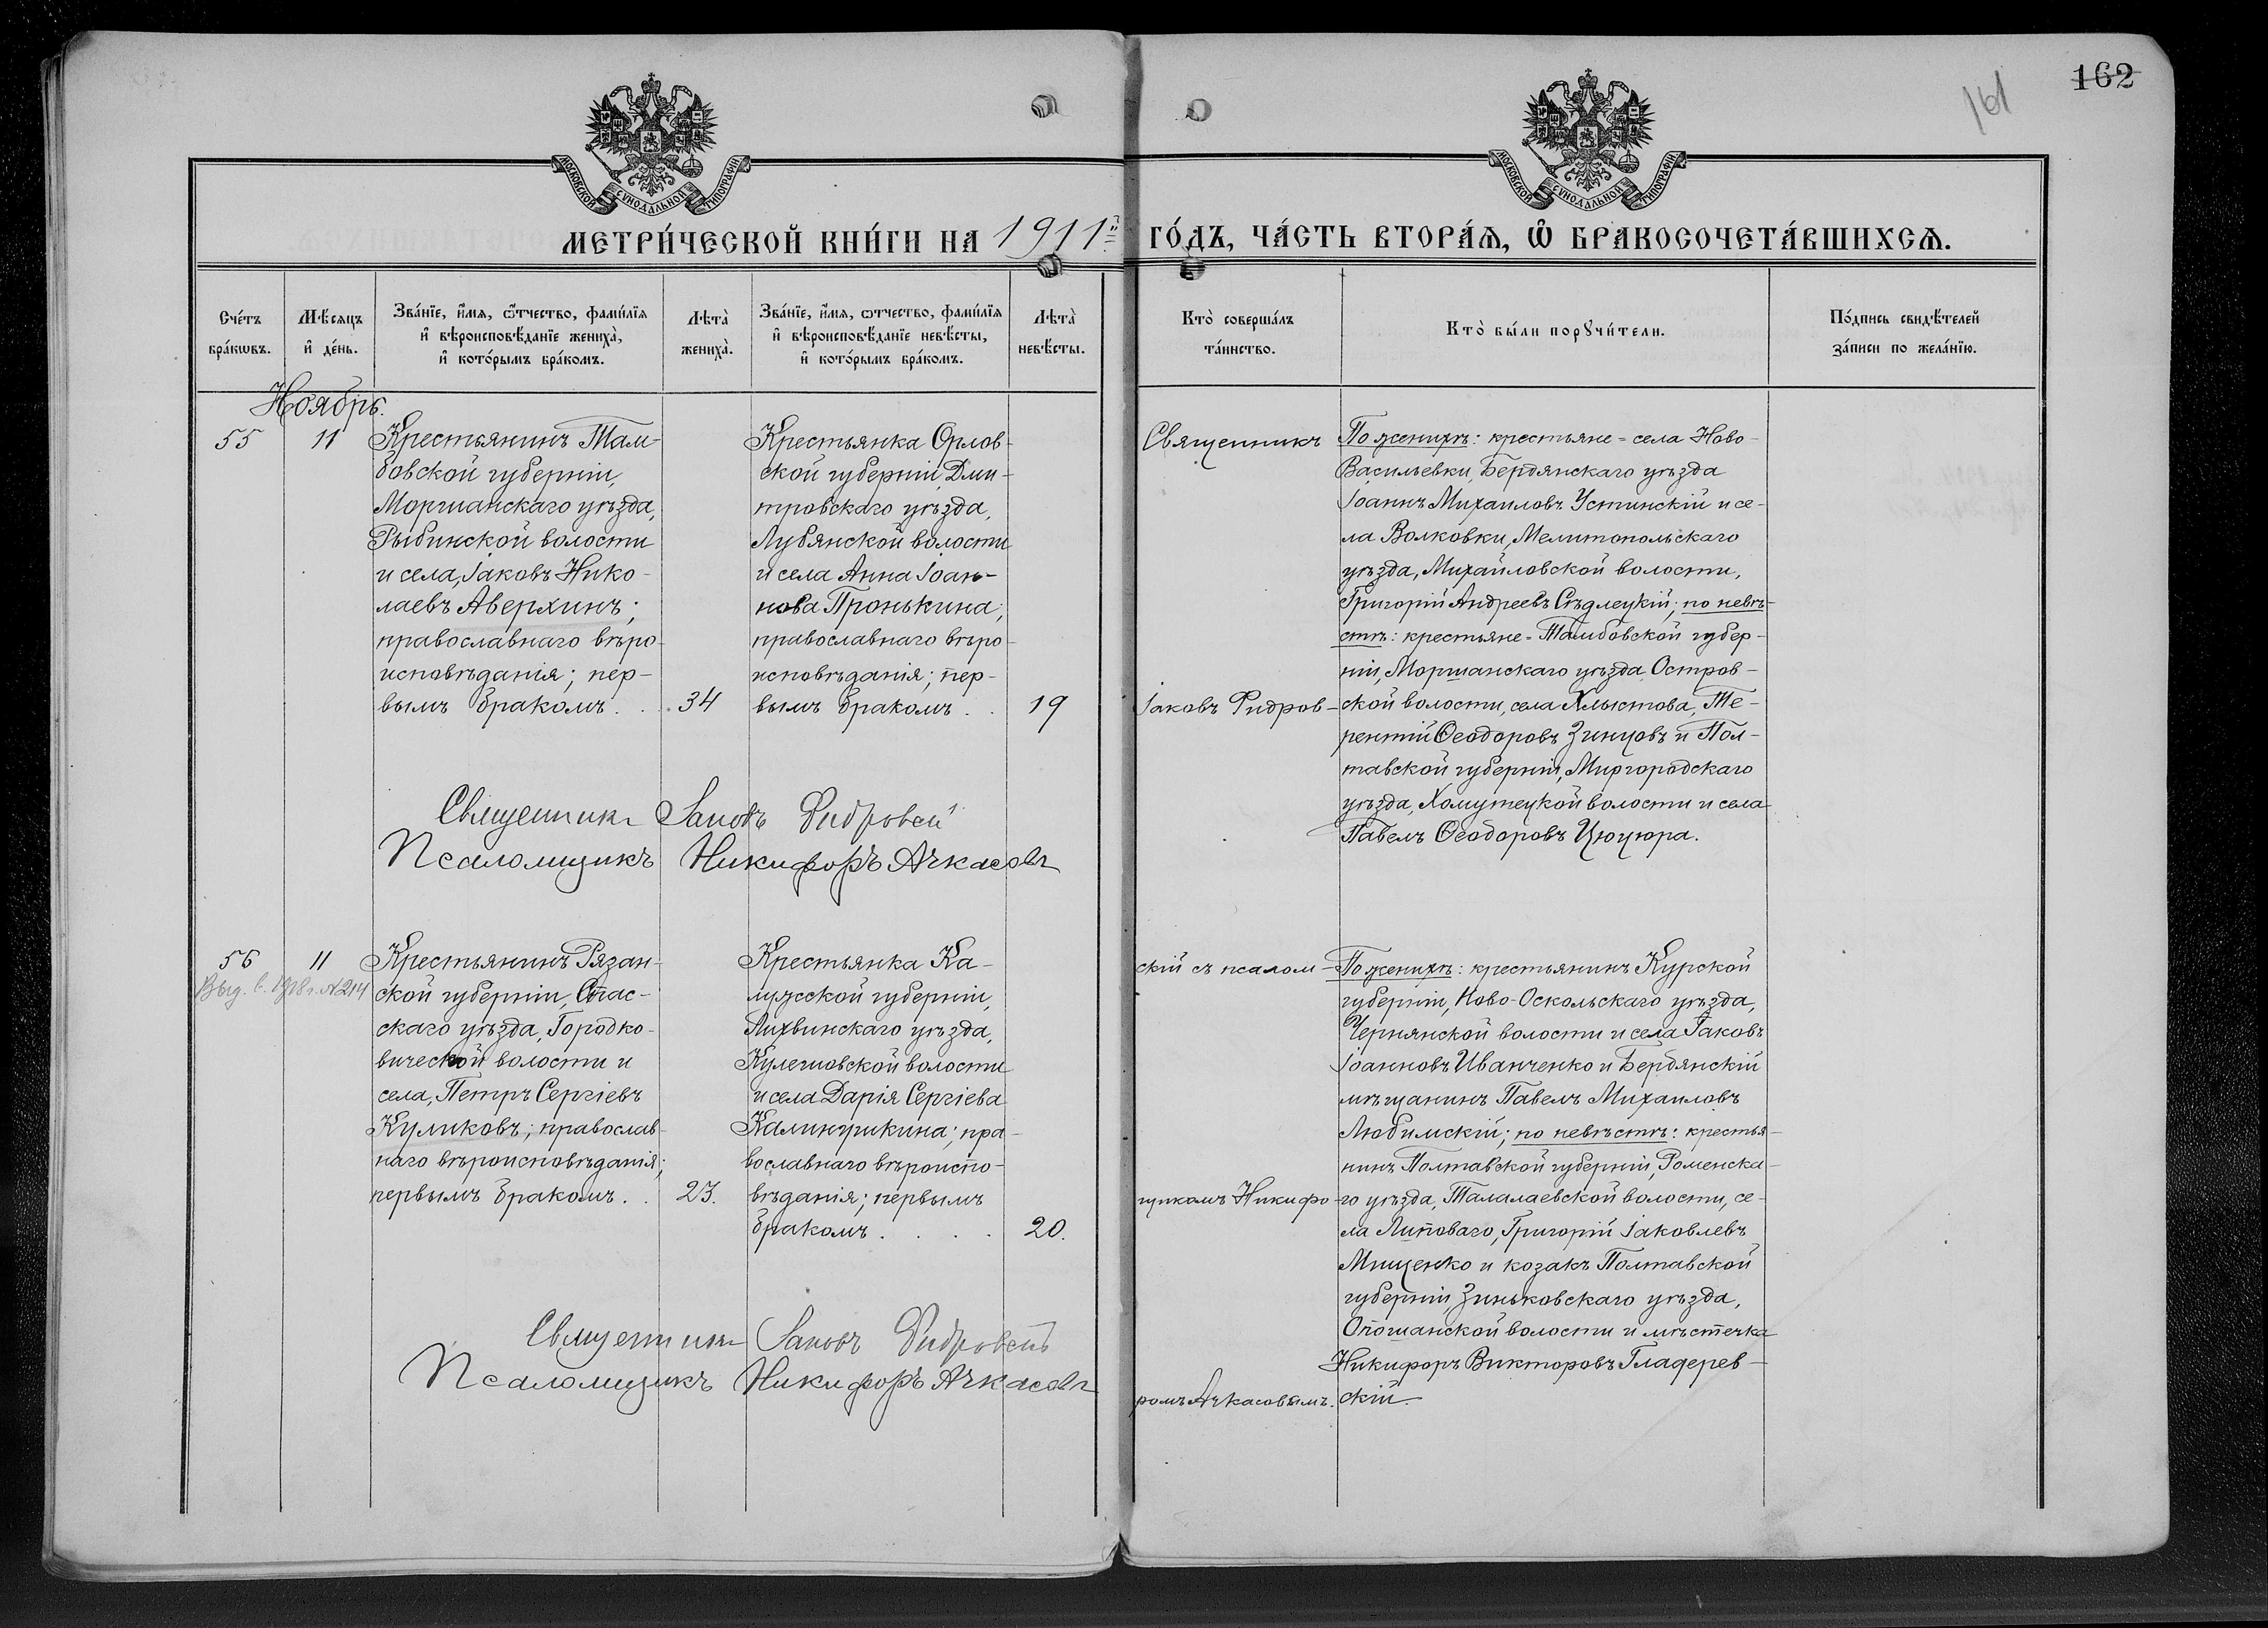 162
161
МОСКОВСКОЙ СѴНОДАЛЬНОЙ ТИПОГРАФІИ
МОСКОВСКОЙ СѴНОДАЛЬНОЙ ТИПОГРАФІИ
МЕТРИ́ЧЕСКОЙ КНИ́ГИ НА 1911й ГО́ДЪ, ЧА́СТЬ ВТОРА́Ѧ, Ѽ БРАКОСОЧЕТА́ВШИХСѦ.
Сче́тъ бра́кѡвъ.
Мѣ́сяцъ и҆ де́нь.
Зва́нїе, и҆́мѧ, ѻ҆́тчество, фами́лїѧ и҆ вѣроисповѣ́данїе жениха̀, и҆ кото́рымъ бра́комъ.
Лѣта̀ жениха̀.
Зва́нїе, и҆́мѧ, ѻ҆́тчество, фами́лїѧ и҆ вѣроисповѣ́данїе невѣ́сты, и҆ кото́рымъ бра́комъ.
Лѣта̀ невѣ́сты.
Кто̀ соверша́лъ та́инство.
Кто̀ бы́ли порꙋчи́тели.
По́дпись свидѣ́телей за́писи по жела́нїю.
Ноябрь.
55
11
Крестьянинъ Там-
бовской губерніи,
Моршанскаго уѣзда,
Рыбинской волости
и села, Іаковъ Нико-
лаевъ Аверхинъ;
православнаго вѣро-
исповѣданія; пер-
вымъ бракомъ . .
34
Крестьянка Орлов-
ской губерніи, Дми-
тровскаго уѣзда,
Лубянской волости
и села Анна Іоан-
нова Пронькина;
православнаго вѣро-
исповѣданія; пер-
вымъ бракомъ . .
19
Священникъ
Іаковъ Фидров-
По женихѣ: крестьяне = села Ново-
Васильевки, Бердянскаго уѣзда
Іоаннъ Михаиловъ Устинскій и се-
ла Волковки, Мелитопольскаго
уѣзда, Михайловской волости,
Григорій Андреевъ Сѣдлецкій; по невѣ-
стѣ: крестьяне = Тамбовской губер-
ніи, Моршанскаго уѣзда Остров-
ской волости, села Хлыстова, Те-
рентій Ѳеодоровъ Зинцовъ и Пол-
тавской губерніи, Миргородскаго
уѣзда, Хомутецкой волости и села
Павелъ Ѳеодоровъ Цюцюра.
Священникъ Іаковъ Фидровскій
Псаломщикъ Никифоръ Ачкасовъ
56
11
Выд. в. 1918 г. № 214
Крестьянинъ Рязан-
ской губерніи, Спас-
скаго уѣзда, Городко-
вической волости и
села, Петръ Сергіевъ
Куликовъ; православ-
наго вѣроисповѣданія;
первымъ бракомъ . .
23.
Крестьянка Ка-
лужской губерніи,
Лихвинскаго уѣзда,
Кулешовской волости
и села Дарія Сергіева
Калинушкина; пра-
вославнаго вѣроиспо-
вѣданія; первымъ
бракомъ . . . .
20.
скій съ псалом-
щикомъ Никифо-
ромъ Ачкасовымъ.
По женихѣ: крестьянинъ Курской
губерніи, Ново-Оскольскаго уѣзда,
Чернянской волости и села Іаковъ
Іоанновъ Иванченко и Бердянскій
мѣщанинъ Павелъ Михаиловъ
Любимскій; по невѣстѣ: крестья-
нинъ Полтавской губерніи, Роменска-
го уѣзда, Талалаевской волости, се-
ла Липоваго, Григорій Іаковлевъ
Мищенко и козакъ Полтавской
губерніи, Зиньковскаго уѣзда,
Опошанской волости и мѣстечка
Никифоръ Викторовъ Гладерев-
скій.
Священникъ Іаковъ Фидровскій
Псаломщикъ Никифоръ Ачкасовъ